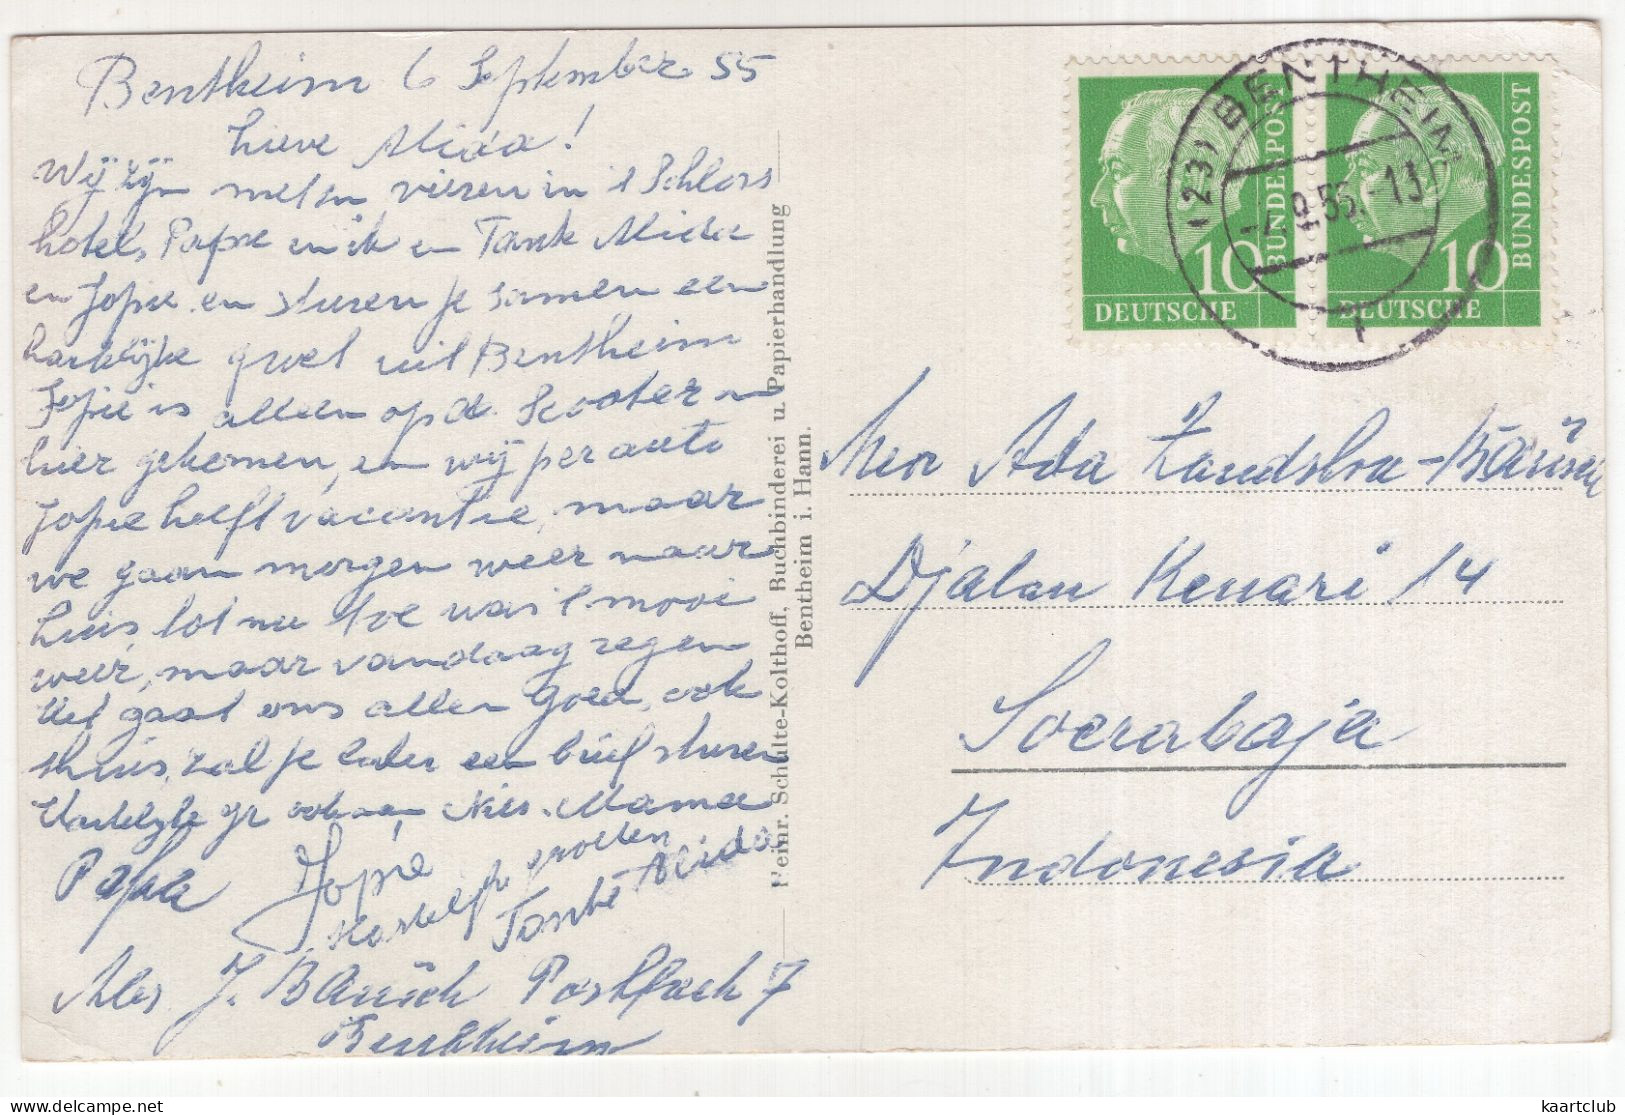 Bentheim 6 September 55
Lieve Alida!
Wij zijn met zn vieren in 't Schloss
hotel, Papa en ik en Tante Alida
en Jopie en sturen je samen een
hartelijke groet uit Bentheim
Jopie is alleen op de Scooter
hier gekomen, en wij per auto
Jopie heeft vacantie, maar
we gaan morgen weer naar
huis, tot nu toe was 't mooi
weer, maar vandaag regen
Het gaat ons allen goed, ook
thuis, zal je later een brief sturen
Hartelijke gr ook aan Nies. Mama
Papa Jopie
Hartelijke groeten
Tante Alida
J. Bausch Postfach 7
Bentheim
Heinr. Schulte-Kolthoff, Buchbinderei u. Papierhandlung
Bentheim i. Hann.
BUNDESPOST
10
DEUTSCHE
BUNDESPOST
10
DEUTSCHE
(23) BENTHEIM
-7.9.55.-13
Mevr Ada Zandstra-Bausch
Djalan Kenari 14
Soerabaja
Indonesia
kaartclub